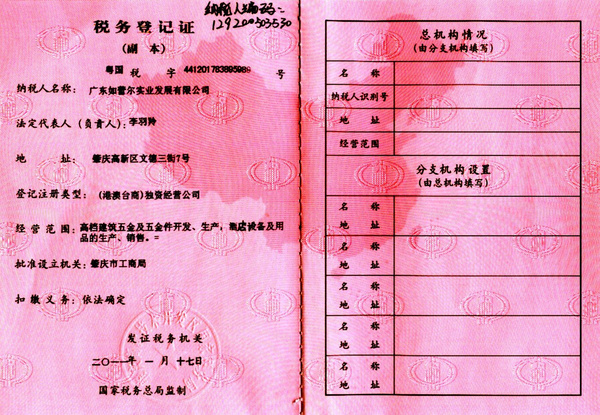 纳税人编码:
12920503530
税务登记证
(副 本)
粤国 税 字 441201783895989 号
纳税人名称: 广东如蕾尔实业发展有限公司
法定代表人(负责人): 李羽羚
地 址: 肇庆高新区文德三街7号
登记注册类型: (港澳台商)独资经营公司
经营范围: 高档建筑五金及五金件开发、生产,集店设备及用
品的生产、销售。=
批准设立机关: 肇庆市工商局
扣缴义务: 依法确定
发证税务机关
二〇一一年 一 月 十七日
国家税务总局监制
总机构情况
(由分支机构填写)
名 称
纳税人识别号
地 址
经营范围
分支机构设置
(由总机构填写)
名 称
地 址
名 称
地 址
名 称
地 址
名 称
地 址
名 称
地 址